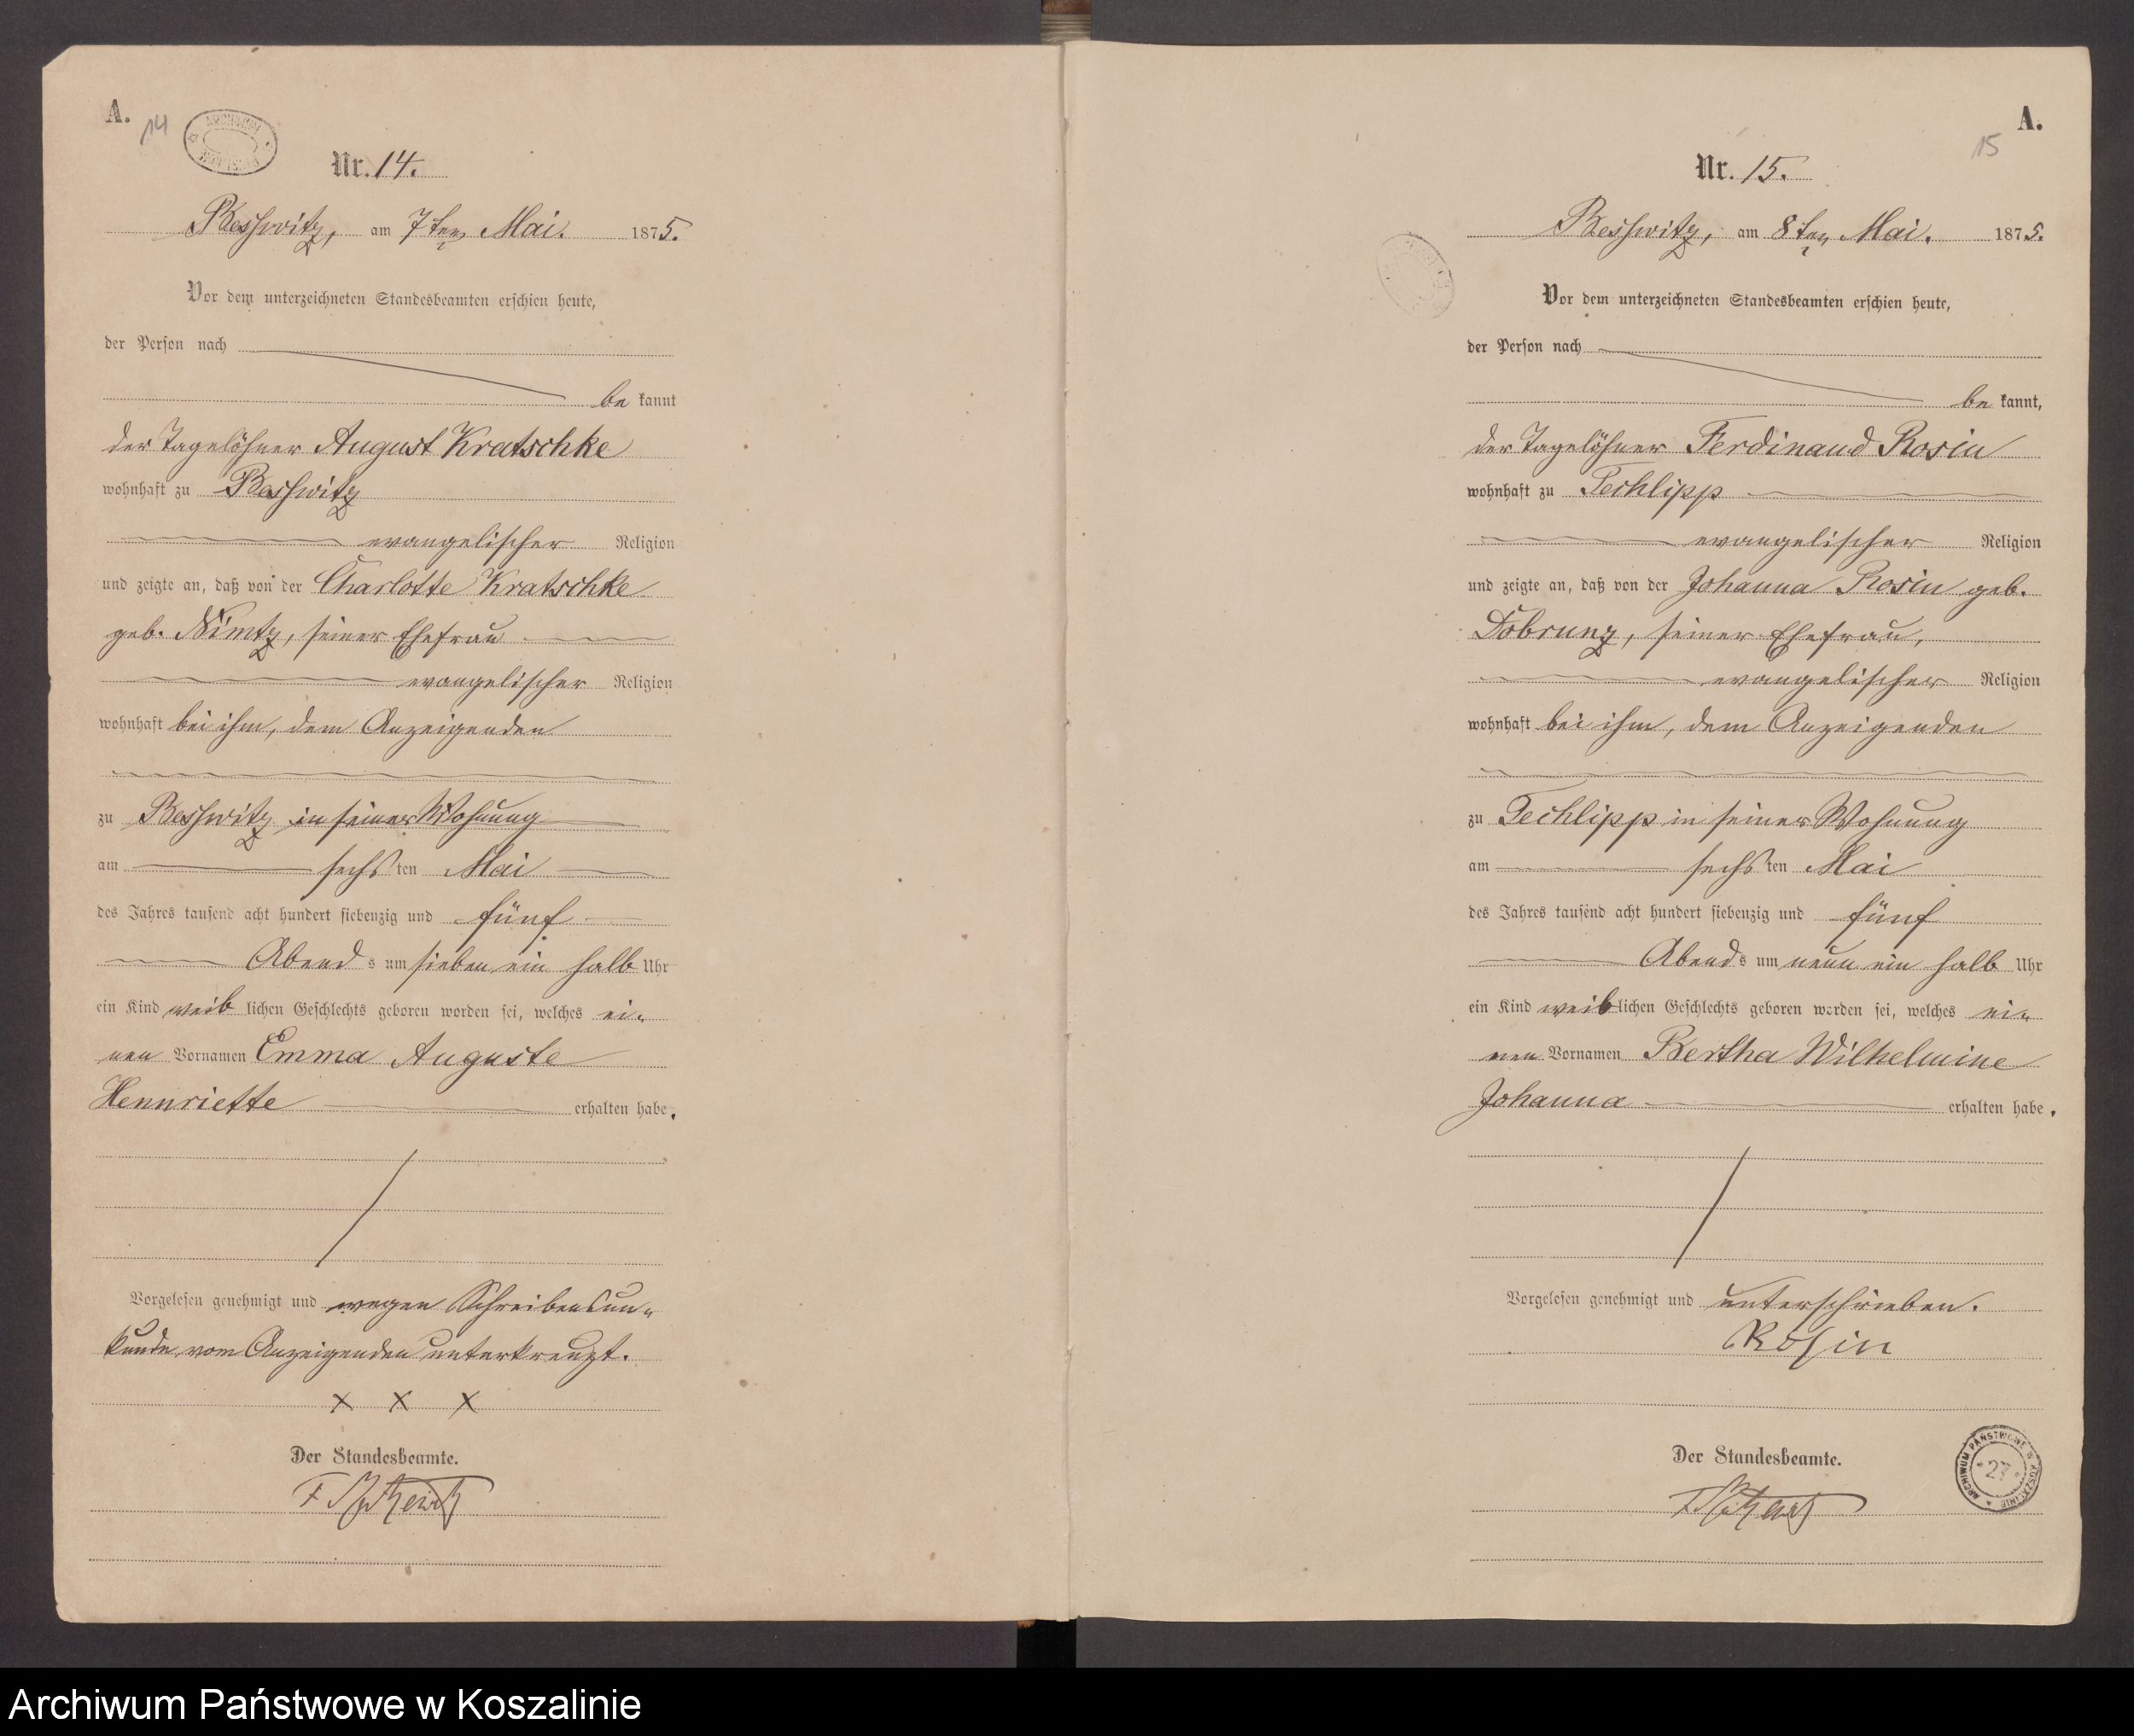 A.
14
Nr. 14.
Besswitz, am 7ten Mai. 1875.
Vor dem unterzeichneten Standesbeamten erschien heute,
der Person nach
be kannt
der Tagelöhner August Kratschke
wohnhaft zu Besswitz
evangelischer Religion
und zeigte an, daß von der Charlotte Kratschke
geb. Nimtz, seiner Ehefrau
evangelischer Religion
wohnhaft bei ihm, dem Anzeigenden
zu Besswitz in seiner Wohnung
am sechsten Mai
des Jahres tausend acht hundert siebenzig und fünf
Abends um sieben ein halb Uhr
ein Kind weiblichen Geschlechts geboren worden sei, welches ei-
nen Vornamen Emma Auguste
Hennriette erhalten habe.
Vorgelesen genehmigt und wegen Schreibensun-
kunde vom Anzeigenden unterkreuzt.
x x x
Der Standesbeamte.
A.
15
Nr. 15.
Besswitz, am 8ten Mai. 1875.
Vor dem unterzeichneten Standesbeamten erschien heute,
der Person nach
be kannt,
der Tagelöhner Ferdinand Rosin
wohnhaft zu Techlipp
evangelischer Religion
und zeigte an, daß von der Johanna Rosin geb.
Dobrunz, seiner Ehefrau,
evangelischer Religion
wohnhaft bei ihm, dem Anzeigenden
zu Techlipp in seiner Wohnung
am sechsten Mai
des Jahres tausend acht hundert siebenzig und fünf
Abends um neun ein halb Uhr
ein Kind weiblichen Geschlechts geboren worden sei, welches ei-
nen Vornamen Bertha Wilhelmine
Johanna erhalten habe.
Vorgelesen genehmigt und unterschrieben.
Rosin
Der Standesbeamte.
ARCHIWUM PAŃSTWOWE W KOSZALINIE
27
Archiwum Państwowe w Koszalinie